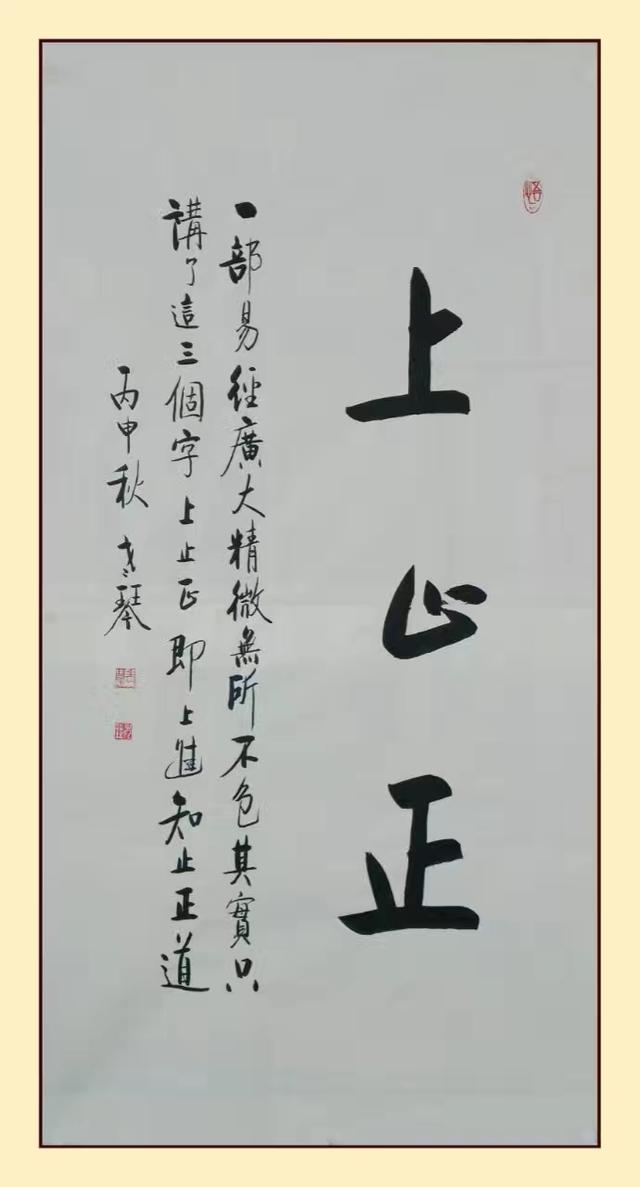 上止正
一部易經廣大精微無所不包其實只
講了這三個字上止正即上進知止正道
丙申秋 琴